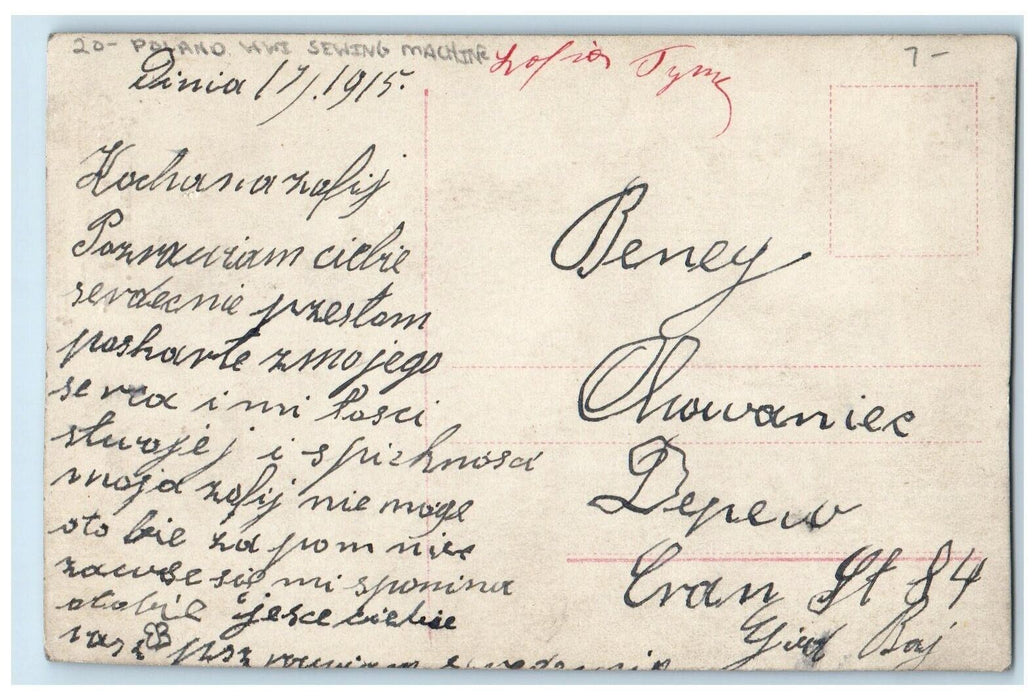 20- POLAND WWI SEWING MACHINE
7-
Zofia Tyma
Dinia 17/. 1915.
Kochana zofij
Pozrawiam ciebie
serdecnie przesłam
poskarte zmojego
serca i mi łosci
stwojej i spieknosci
moja zofij nie moge
oto bie za pom niec
zawse się mi spomina
otobie jesce ciebie
raz pozrawiam serdecnie
Beney
Chowaniec
Depew
Cran St 84